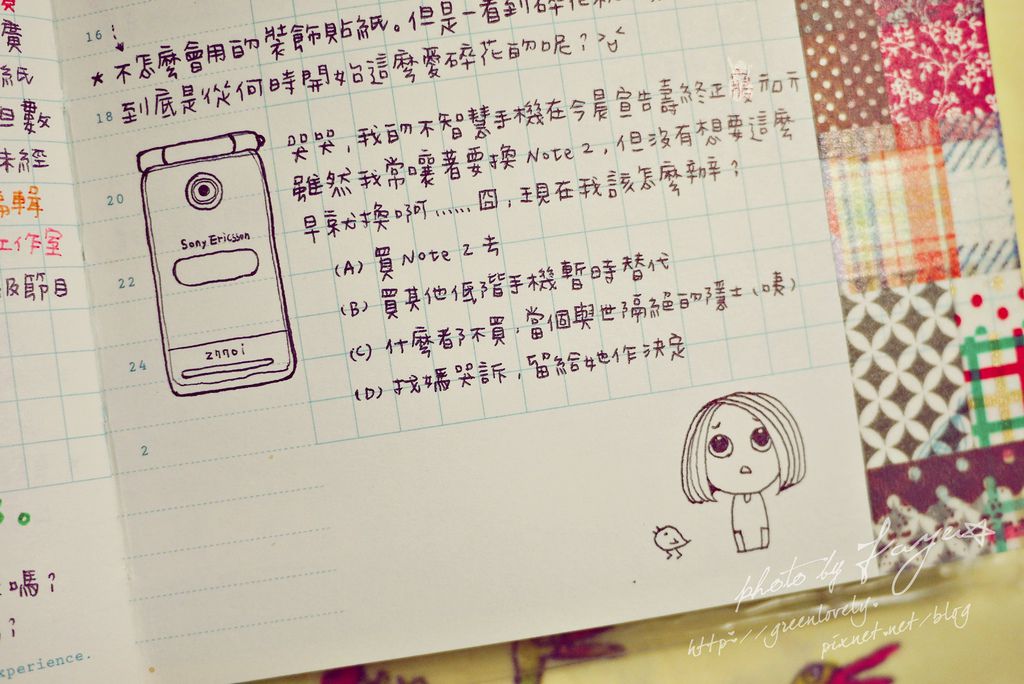 廣
紙
但數
未經
編輯
工作室
及節目
嗎？
？
xperience.
16
不怎麼會用的裝飾貼紙。但是一看到碎花
18
到底是從何時開始這麼愛碎花的呢？
哭哭，我的不智慧手機在今晨宣告壽終正寢
雖然我常嚷著要換 Note 2，但沒有想要這麼
早就換啊……囧，現在我該怎麼辦？
20
22
24
2
Sony Ericsson
z770i
(A) 買 Note 2 去
(B) 買其他低階手機暫時替代
(C) 什麼都不買，當個與世隔絕的隱士(咦)
(D) 找媽哭訴，留給她作決定
photo by Faye
http://greenlovely.
pixnet.net/blog